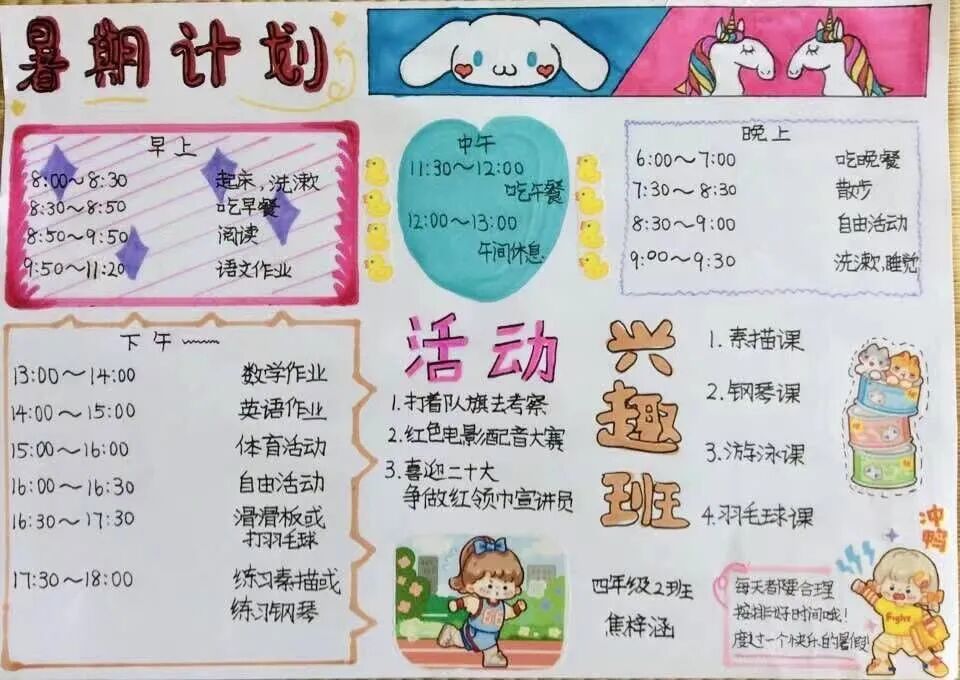 暑期计划
早上
8:00～8:30 起床,洗漱
8:30～8:50 吃早餐
8:50～9:50 阅读
9:50～11:20 语文作业
中午
11:30～12:00
吃午餐
12:00～13:00
午间休息
晚上
6:00～7:00 吃晚餐
7:30～8:30 散步
8:30～9:00 自由活动
9:00～9:30 洗漱,睡觉
下午
13:00～14:00 数学作业
14:00～15:00 英语作业
15:00～16:00 体育活动
16:00～16:30 自由活动
16:30～17:30 滑滑板或
打羽毛球
17:30～18:00 练习素描或
练习钢琴
活动
1.打着队旗去考察
2.红色电影配音大赛
3.喜迎二十大
争做红领巾宣讲员
兴趣班
1.素描课
2.钢琴课
3.游泳课
4.羽毛球课
四年级2班
焦梓涵
每天都要合理
按排好时间哦!
度过一个快乐的暑假!
冲鸭
Fight